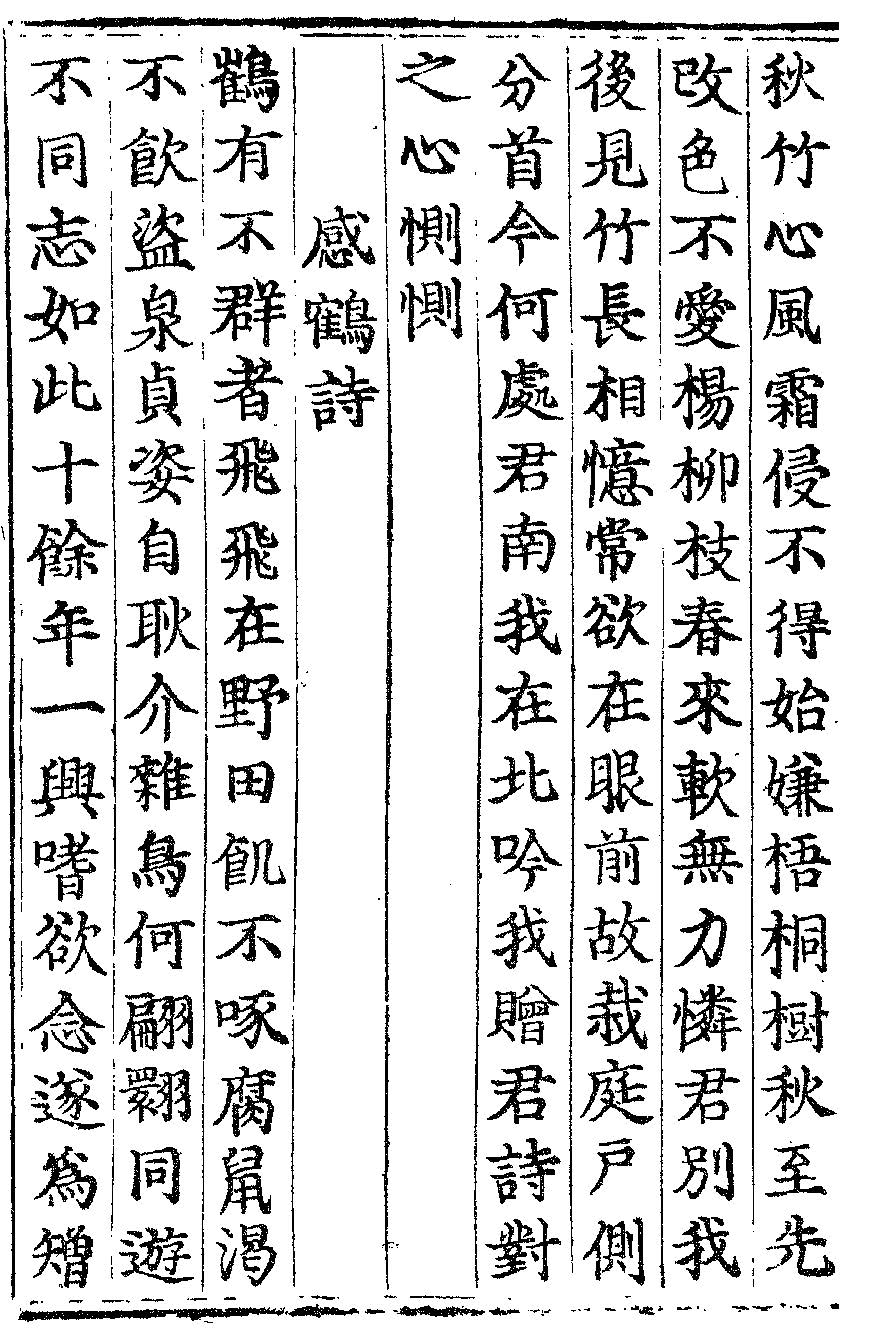 秋竹心風霜侵不得始嫌梧桐樹秋至先
改色不愛楊柳枝春來軟無力憐君別我
後見竹長相憶常欲在眼前故栽庭戸側
分首今何處君南我在北吟我贈君詩對
之心惻惻
感鶴詩
鶴有不群者飛飛在野田飢不啄腐鼠渇
不飲盜泉貞姿自耿介雜鳥何翩翾同遊
不同志如此十餘年一興嗜欲念遂爲矰